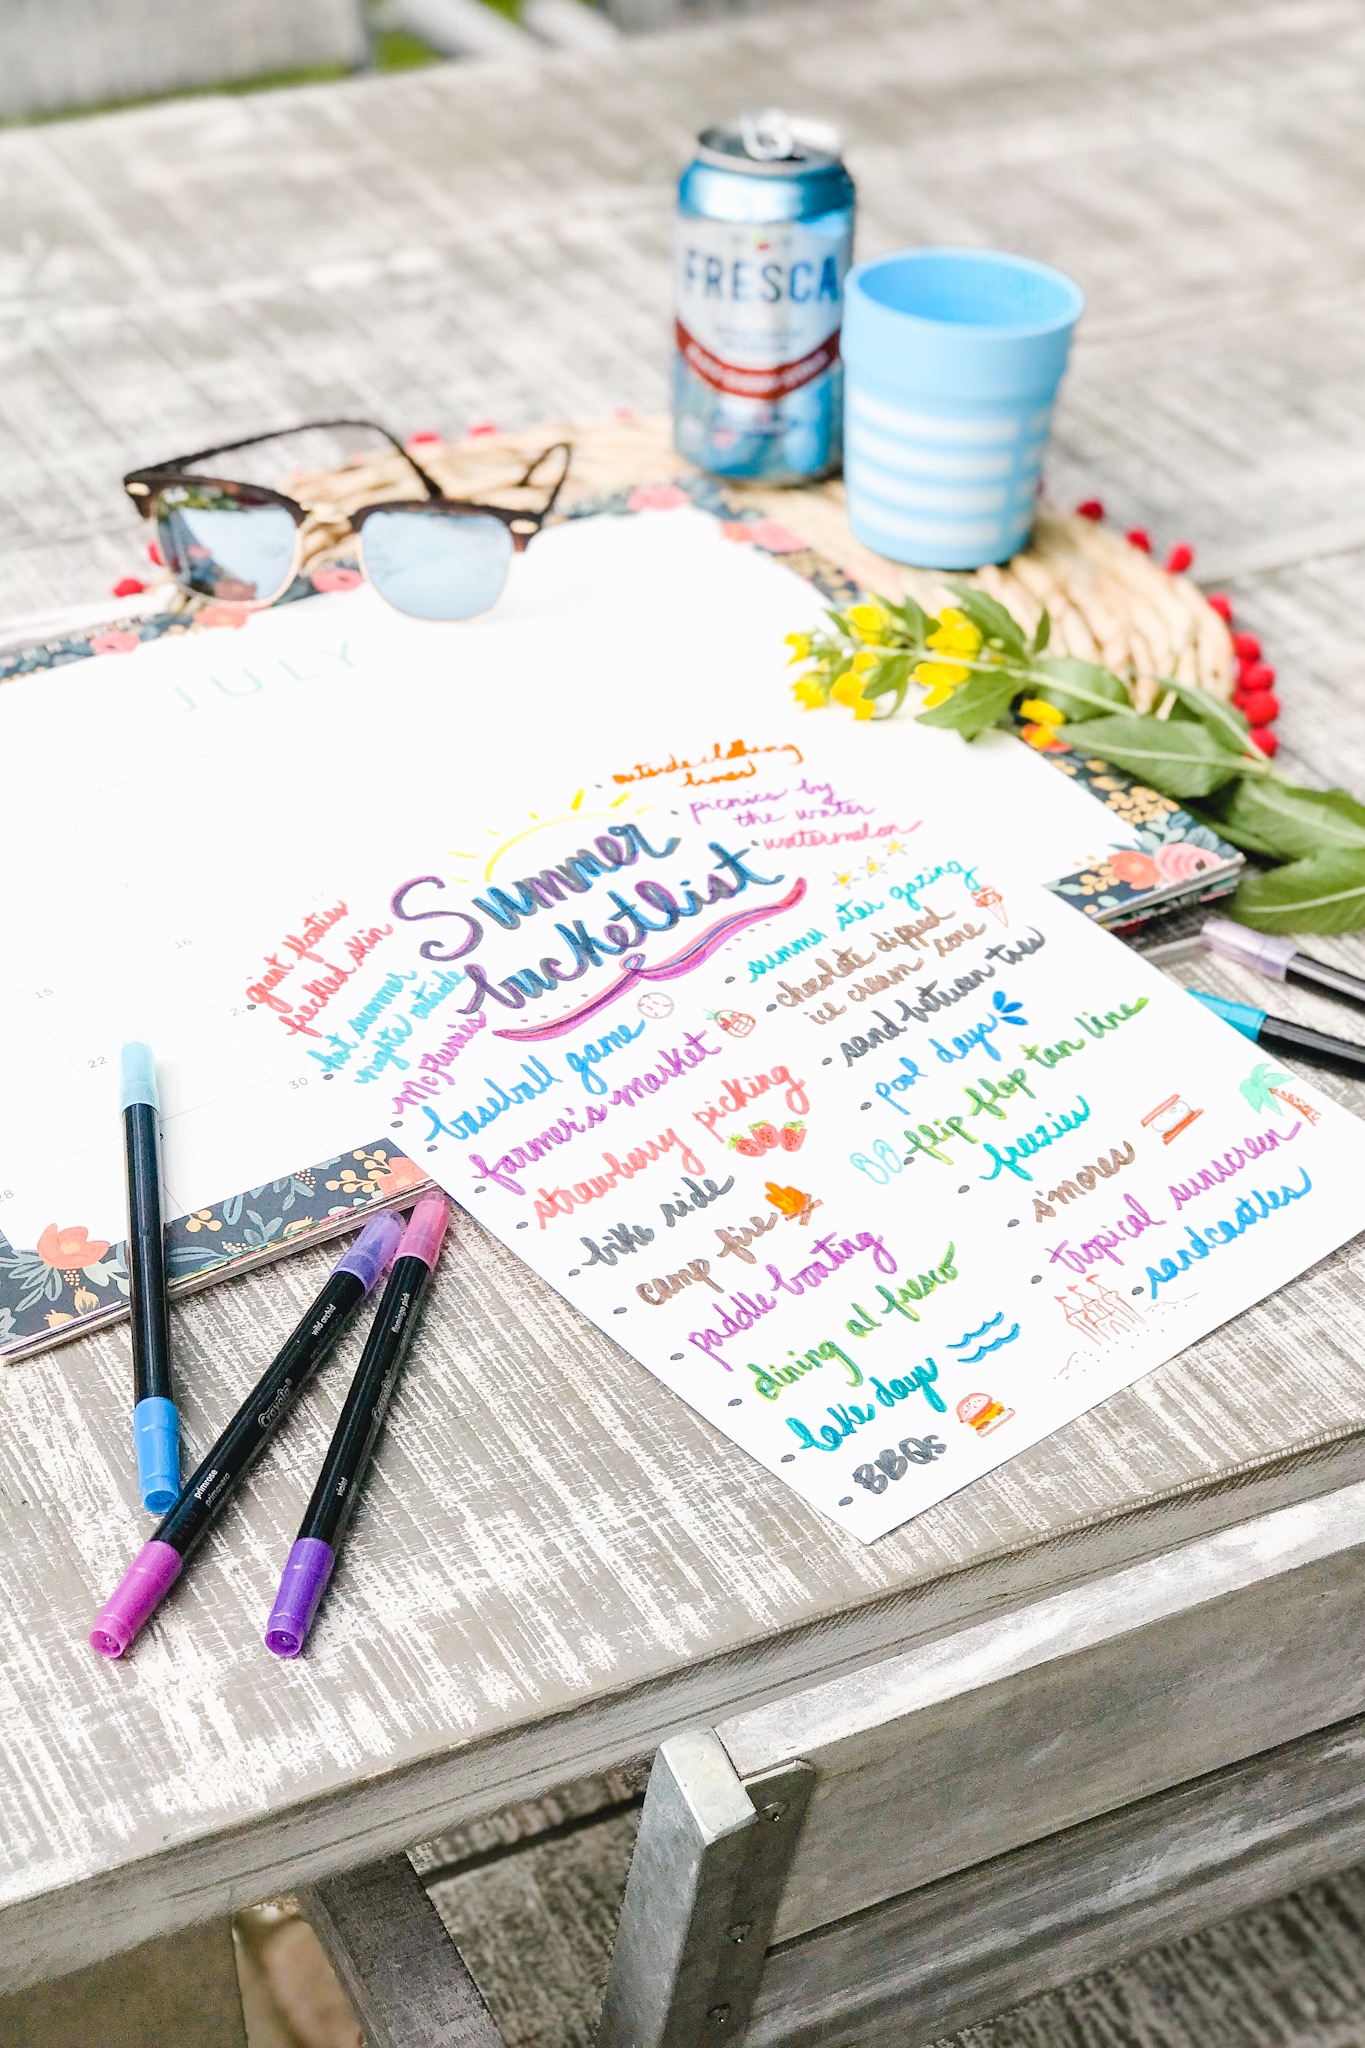 FRESCA
JULY
15
16
22
28
30
Summer
bucketlist
outside clothing
lines
picnics by
the water
watermelon
summer star gazing
chocolate dipped
ice cream cone
sand between toes
pool days
flip flop tan line
freezies
s'mores
tropical sunscreen
sandcastles
giant floaties
freckled skin
hot summer
nights outside
McFlurries
baseball game
farmer's market
strawberry picking
bike ride
camp fire
paddle boating
dining al fresco
lake days
BBQs
wild orchid
Crayola
primrose
primavera
flamingo pink
violet